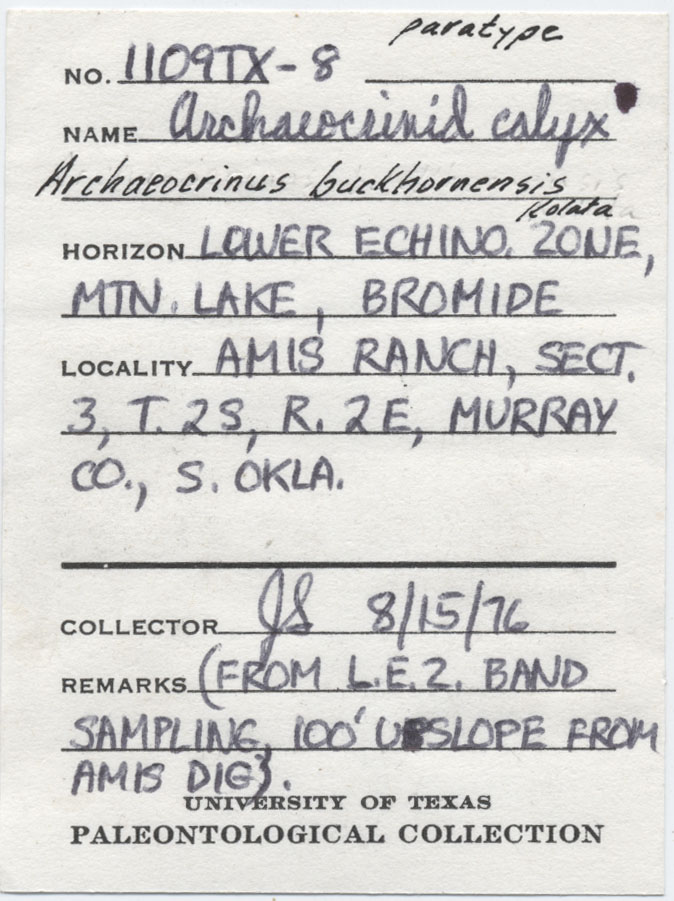 paratype
NO. 1109TX-8
NAME Archaeocrinid calyx
Archaeocrinus buckhornensis
Kolata
HORIZON LOWER ECHINO. ZONE,
MTN. LAKE, BROMIDE
LOCALITY AMIS RANCH, SECT.
3, T. 2S, R. 2E, MURRAY
CO., S. OKLA.
COLLECTOR JS 8/15/76
REMARKS (FROM L.E.Z. BAND
SAMPLING, 100' UPSLOPE FROM
AMIS DIG).
UNIVERSITY OF TEXAS
PALEONTOLOGICAL COLLECTION